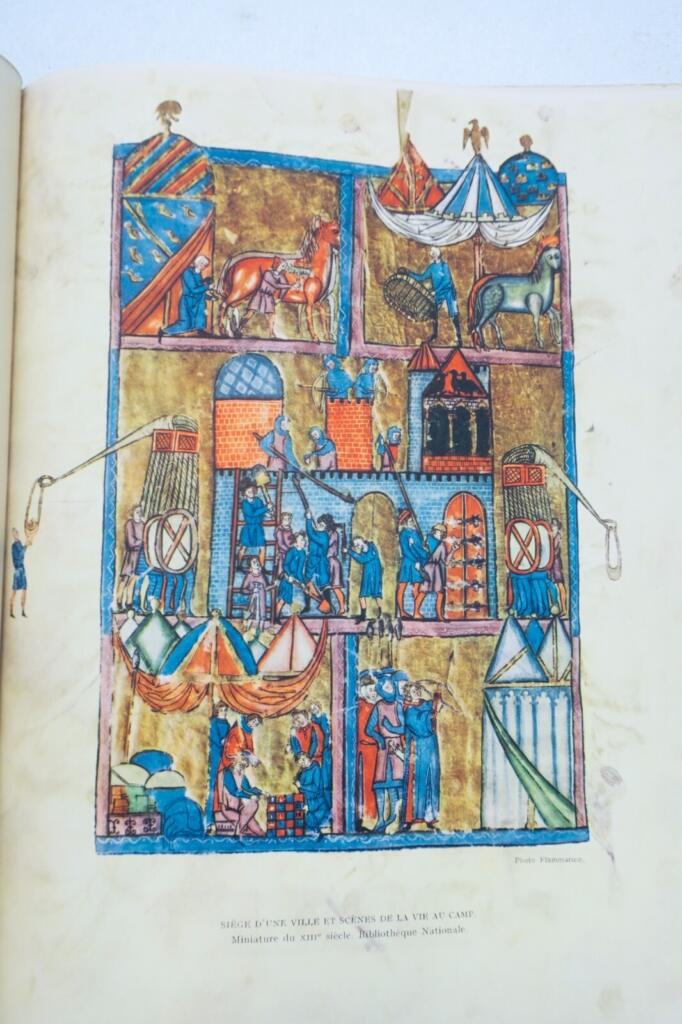 Photo Flammarion.
SIÈGE D'UNE VILLE ET SCÈNES DE LA VIE AU CAMP.
Miniature du XIIIe siècle. Bibliothèque Nationale.